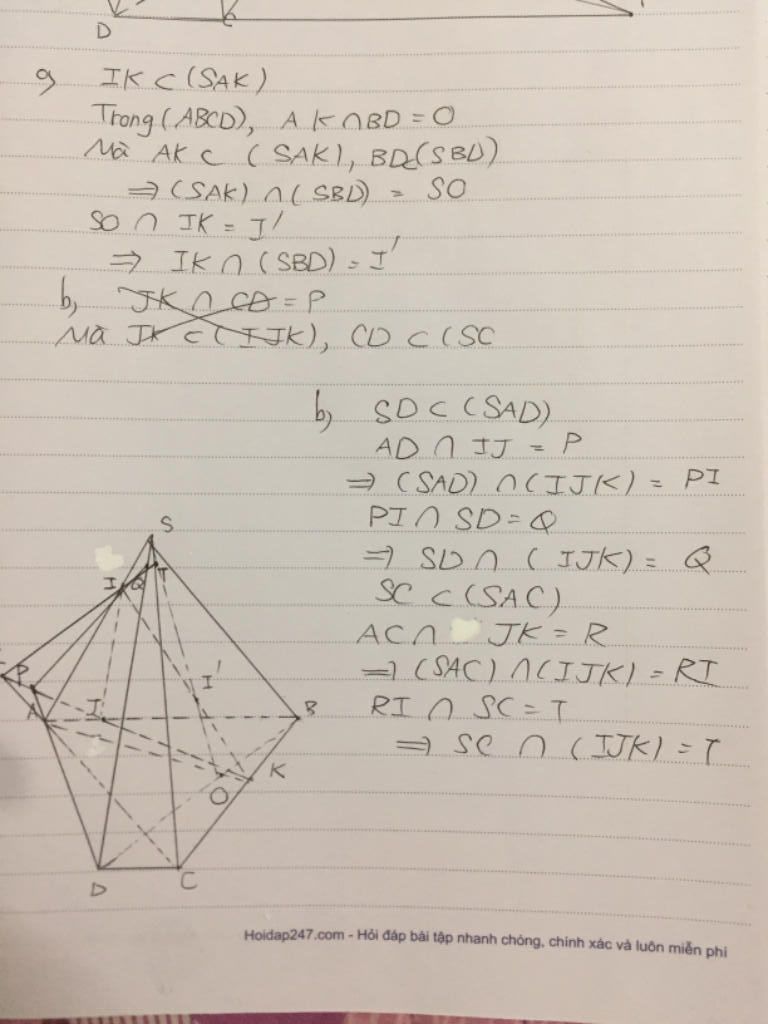 D C
a, IK ⊂ (SAK)
Trong (ABCD), AK ∩ BD = O
Mà AK ⊂ (SAK), BD ⊂ (SBD)
⇒ (SAK) ∩ (SBD) = SO
SO ∩ IK = I'
⇒ IK ∩ (SBD) = I'
b, JK ∩ CD = P
Mà JK ⊂ (IJK), CD ⊂ (SC
b, SD ⊂ (SAD)
AD ∩ IJ = P
⇒ (SAD) ∩ (IJK) = PI
PI ∩ SD = Q
⇒ SD ∩ (IJK) = Q
SC ⊂ (SAC)
AC ∩ JK = R
⇒ (SAC) ∩ (IJK) = RI
RI ∩ SC = T
⇒ SC ∩ (IJK) = T
S
I Q T
P I'
A I B
O K
D C
Hoidap247.com - Hỏi đáp bài tập nhanh chóng, chính xác và luôn miễn phí